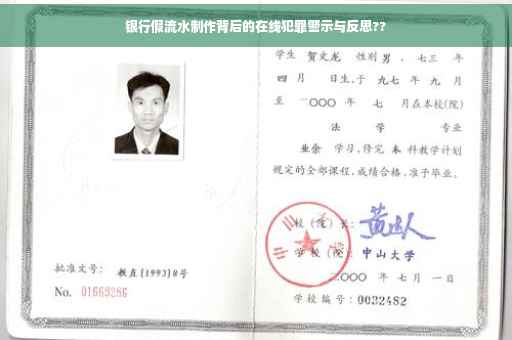 银行假流水制作背后的在线犯罪警示与反思??
学生 贺文龙 性别 男 、七三 年
四 月 日生,于 九七 年 九 月
至 二〇〇〇 年 七 月在本校(院)
法 学 专业
业余 学习,修完 本 科教学计划
规定的全部课程,成绩合格,准予毕业。
校 (院) 长:
学 校 (院): 中山大学
二〇〇〇 年 七 月 一 日
批准文号: 教直(1993)8号
No. 01669286
学校编号: 0032482